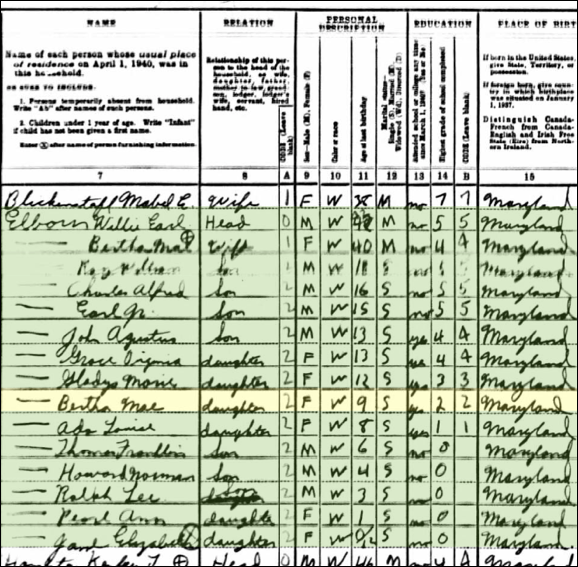 NAME RELATION PERSONAL DESCRIPTION EDUCATION PLACE OF BIRT
Name of each person whose usual place of residence on April 1, 1940, was in this household.
BE SURE TO INCLUDE:
1. Persons temporarily absent from household. Write "Ab" after names of such persons.
2. Children under 1 year of age. Write "Infant" if child has not been given a first name.
Enter ⊗ after name of person furnishing information.
Relationship of this person to the head of the household, as wife, daughter, father, mother-in-law, grandson, lodger, lodger's wife, servant, hired hand, etc.
CODE (Leave blank)
Sex—Male (M), Female (F)
Color or race
Age at last birthday
CODE (Leave blank)
If born in the United States, give State, Territory, or possession.
If foreign born, give country in which birthplace was situated on January 1, 1937.
Distinguish Canada-French from Canada-English and Irish Free State (Eire) from Northern Ireland.
7 8 A 9 10 11 12 13 14 B 15
Mabel E. Wife 1 F W M no 7 7 Maryland
Elborn Willie Earl Head 0 M W M no 5 5 Maryland
— Bertha Mae ⊗ Wife 1 F W 40 M no 4 4 Maryland
Son M W 18 S Maryland
— Charles Alfred Son 2 M W 16 S no 5 5 Maryland
— Earl Jr. Son 2 M W 15 S no 5 5 Maryland
— John Agustus Son 2 M W 13 S yes 4 4 Maryland
— Grace Virginia daughter 2 F W 13 S yes 4 4 Maryland
— Gladys Marie daughter 2 F W 12 S yes 3 3 Maryland
— Bertha Mae daughter 2 F W 9 S yes 2 2 Maryland
— Ada Louise daughter 2 F W 8 S yes 1 1 Maryland
— Thomas Franklin Son 2 M W 6 S no 0 Maryland
— Howard Norman Son 2 M W 4 S no 0 Maryland
— Ralph Lee 2 M W 3 S no 0 Maryland
— Pearl Ann daughter 2 F W 1 S no 0 Maryland
— Jane Elizabeth daughter 2 F W S no 0 Maryland
Head 0 M W 46 M no 4 Maryland